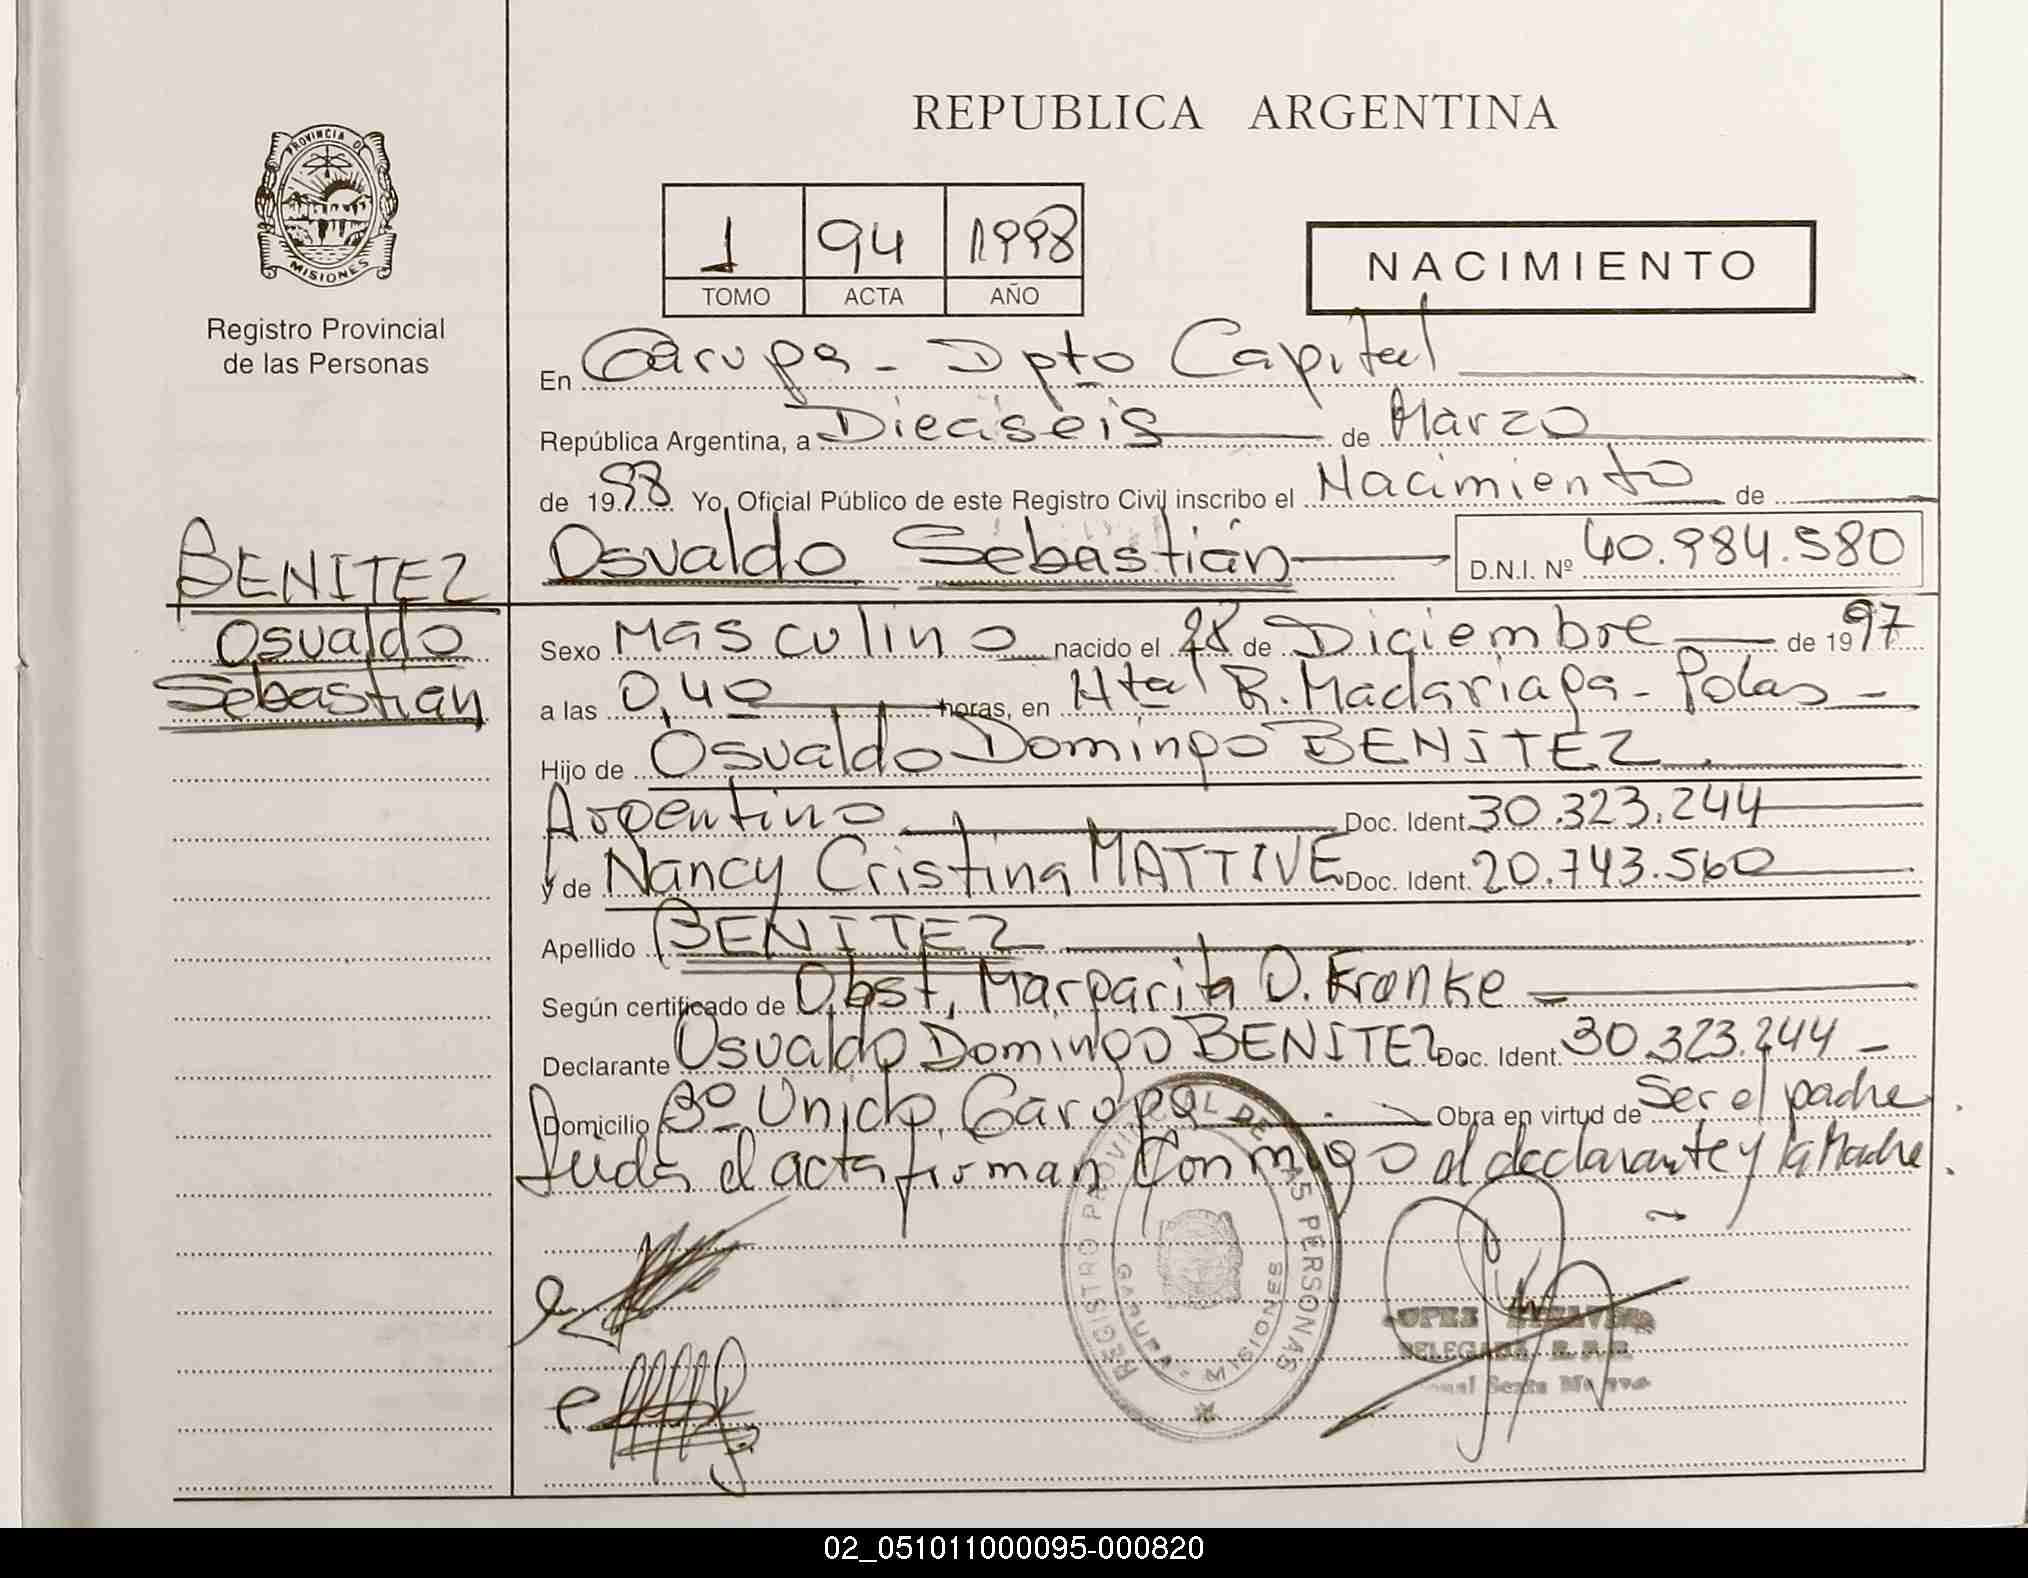 REPUBLICA ARGENTINA
PROVINCIA DE
MISIONES
Registro Provincial
de las Personas
1 94 1998
TOMO ACTA AÑO
NACIMIENTO
En Garupa - Dpto Capital
República Argentina, a Dieciseis de Marzo
de 1998 Yo, Oficial Público de este Registro Civil inscribo el Nacimiento de
BENITEZ
Osvaldo
Sebastian
Osvaldo Sebastián D.N.I. Nº 40.984.580
Sexo Masculino nacido el 28 de Diciembre de 1997
a las 0,40 horas, en Htal R. Madariaga - Pdas -
Hijo de Osvaldo Domingo BENITEZ
Argentino Doc. Ident. 30.323.244
y de Nancy Cristina MATTIVE Doc. Ident. 20.743.560
Apellido BENITEZ
Según certificado de Obst. Margarita O. Fronke
Declarante Osvaldo Domingo BENITEZ Doc. Ident. 30.323.244 -
Domicilio Bº Unido, Garupa Obra en virtud de Ser el padre
Leida el acta firman Conmigo el declarante y la Madre.
REGISTRO PROVINCIAL DE LAS PERSONAS
GARUPA - MISIONES
DELEGADA R.P.P.
02_051011000095-000820